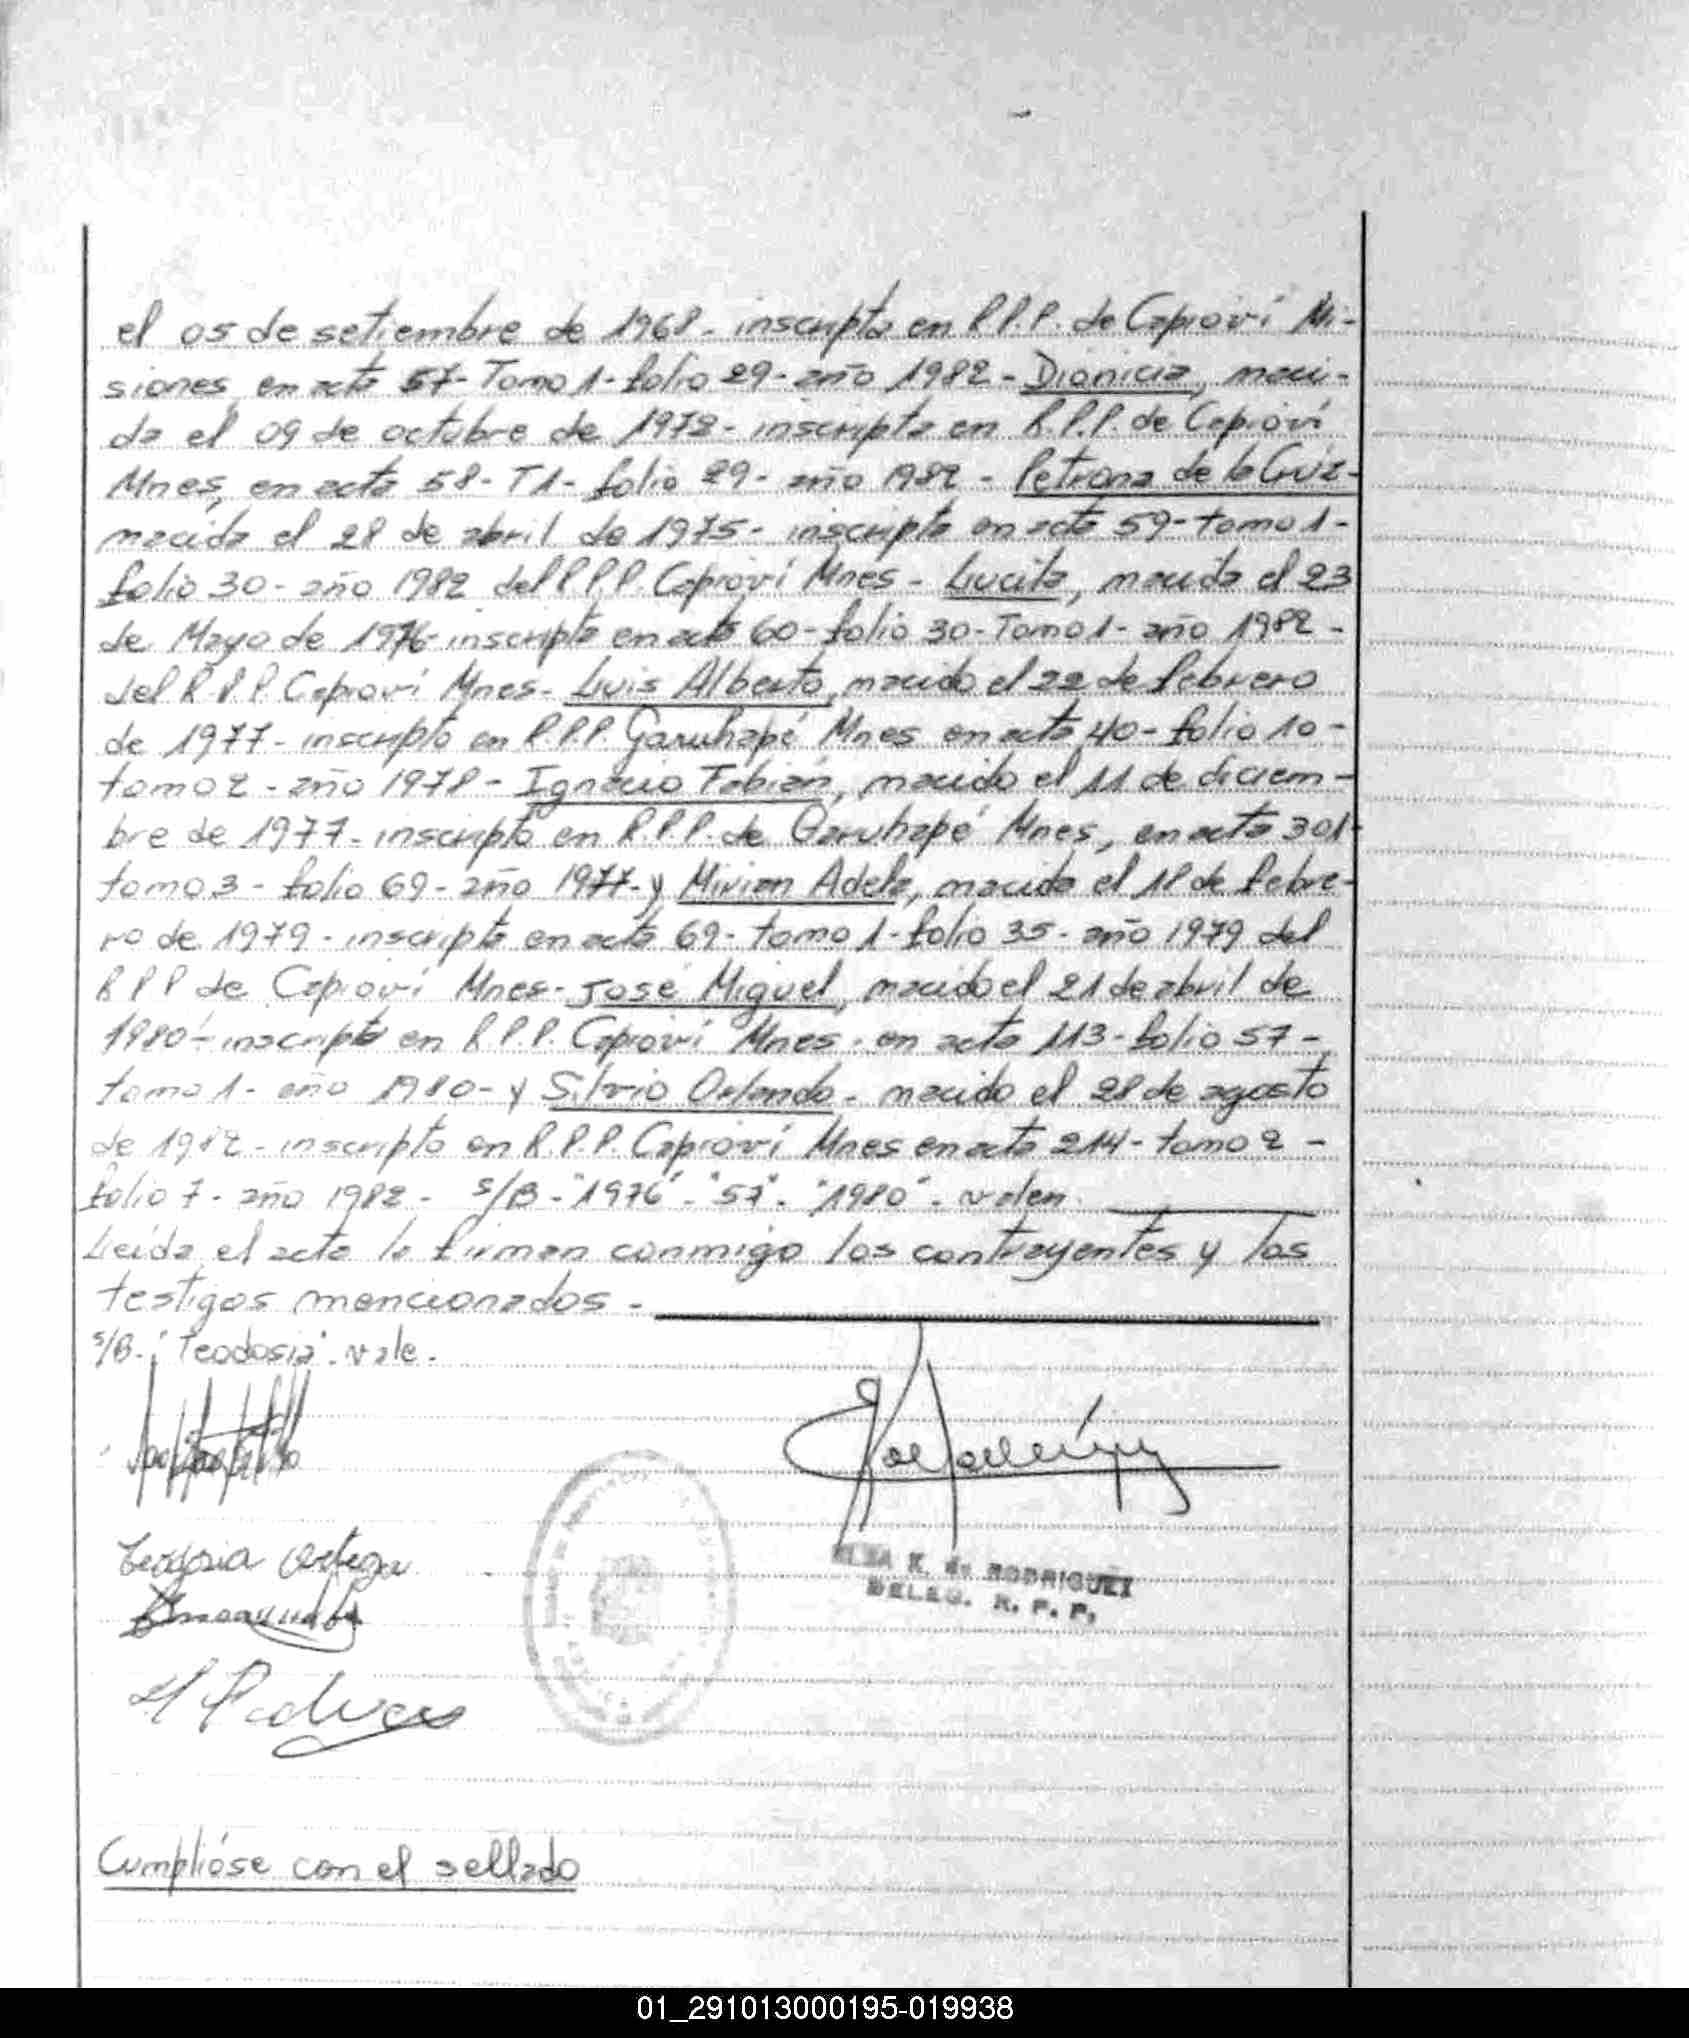 el 05 de setiembre de 1968- inscripta en R.P.P. de Capioví Mi-
siones, en acta 57- Tomo 1- folio 29- año 1982- Dionicia, naci-
da el 09 de octubre de 1972- inscripta en R.P.P. de Capioví
Mnes, en acta 58- T1- folio 29- año 1982- Petrona de la Cruz-
nacida el 28 de abril de 1975- inscripta en acta 59- tomo 1-
folio 30- año 1982 del R.P.P. Capioví Mnes- Lucila, nacida el 23
de Mayo de 1976- inscripta en acta 60- folio 30- Tomo 1- año 1982-
del R.P.P. Capioví Mnes- Luis Alberto, nacido el 22 de febrero
de 1977- inscripto en R.P.P. Garuhapé Mnes en acta 40- folio 10-
tomo 2- año 1978- Ignacio Fabián, nacido el 11 de diciem-
bre de 1977- inscripto en R.P.P. de Garuhapé Mnes, en acta 301-
tomo 3- folio 69- año 1977- y Mirian Adela, nacida el 18 de febre-
ro de 1979- inscripta en acta 69- tomo 1- folio 35- año 1979 del
R P P de Capioví Mnes- José Miguel, nacido el 21 de abril de
1980- inscripto en R.P.P. Capioví Mnes- en acta 113- folio 57-
tomo 1- año 1980- y Silvio Orlando- nacido el 28 de agosto
de 1982- inscripto en R.P.P. Capioví Mnes en acta 214- tomo 2-
folio 7- año 1982- s/B- "1976"- "57"- "1980"- valen.
Leída el acta la firman conmigo los contrayentes y los
testigos mencionados-
s/B- "Teodosia". vale.
Teodosia Ortega
ELSA K. de RODRIGUEZ
DELEG. R. P. P.
Cumplióse con el sellado
01_291013000195-019938